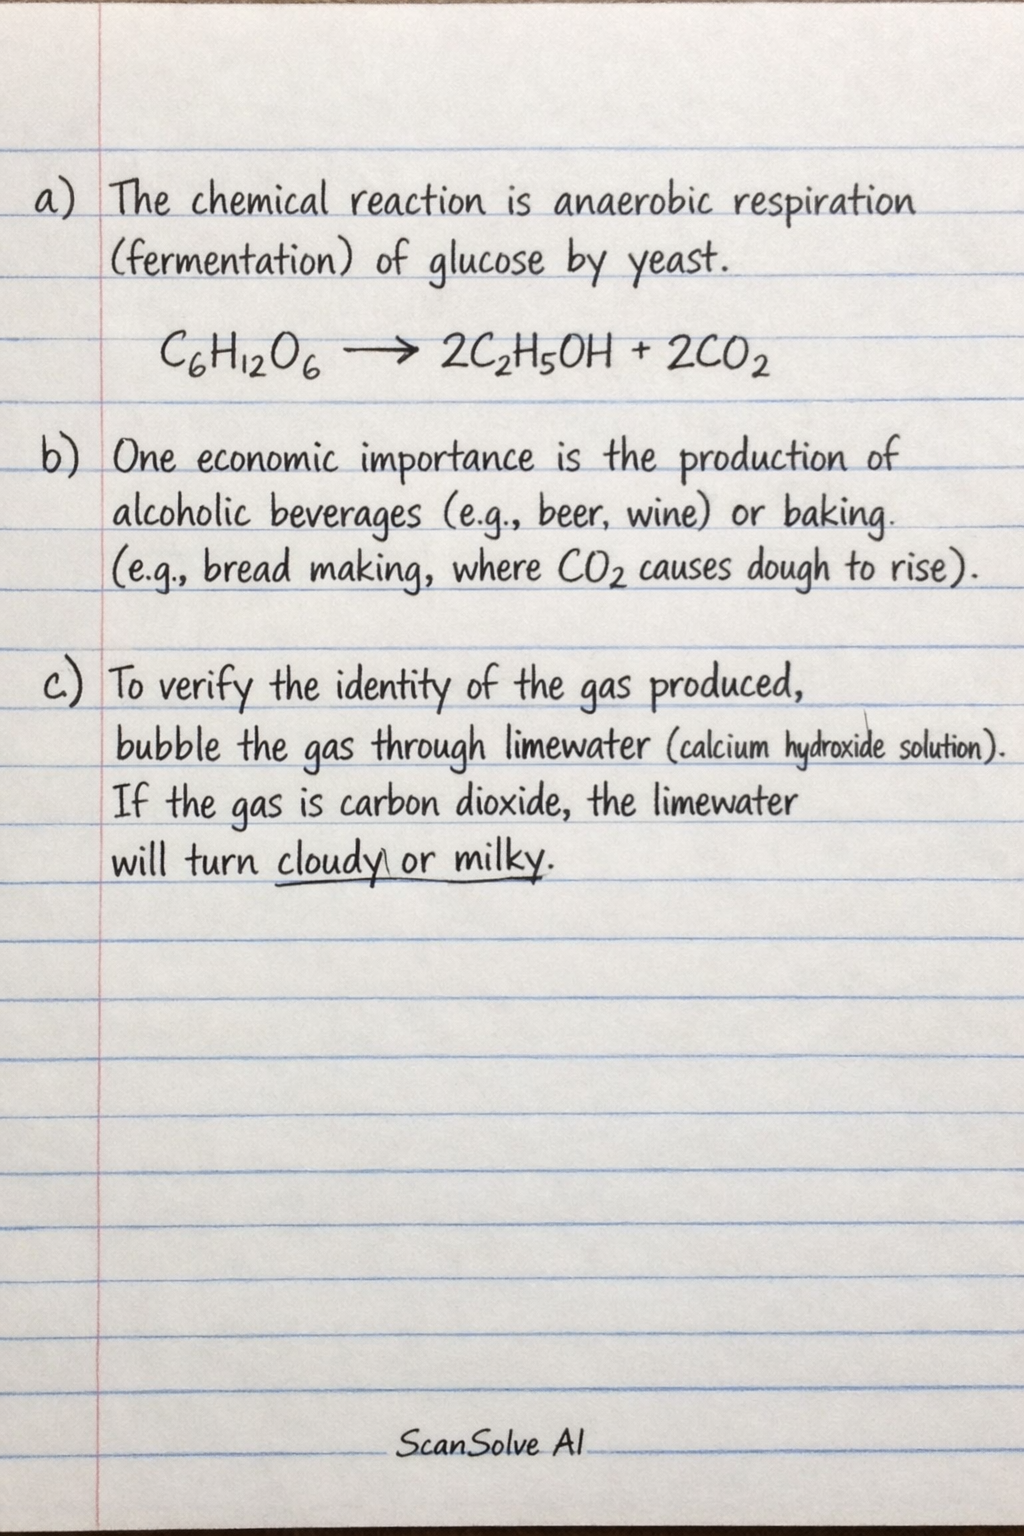 a) The chemical reaction is anaerobic respiration
(fermentation) of glucose by yeast.
C₆H₁₂O₆ ⟶ 2C₂H₅OH + 2CO₂
b) One economic importance is the production of
alcoholic beverages (e.g., beer, wine) or baking.
(e.g., bread making, where CO₂ causes dough to rise).
c) To verify the identity of the gas produced,
bubble the gas through limewater (calcium hydroxide solution).
If the gas is carbon dioxide, the limewater
will turn cloudy or milky.
ScanSolve AI